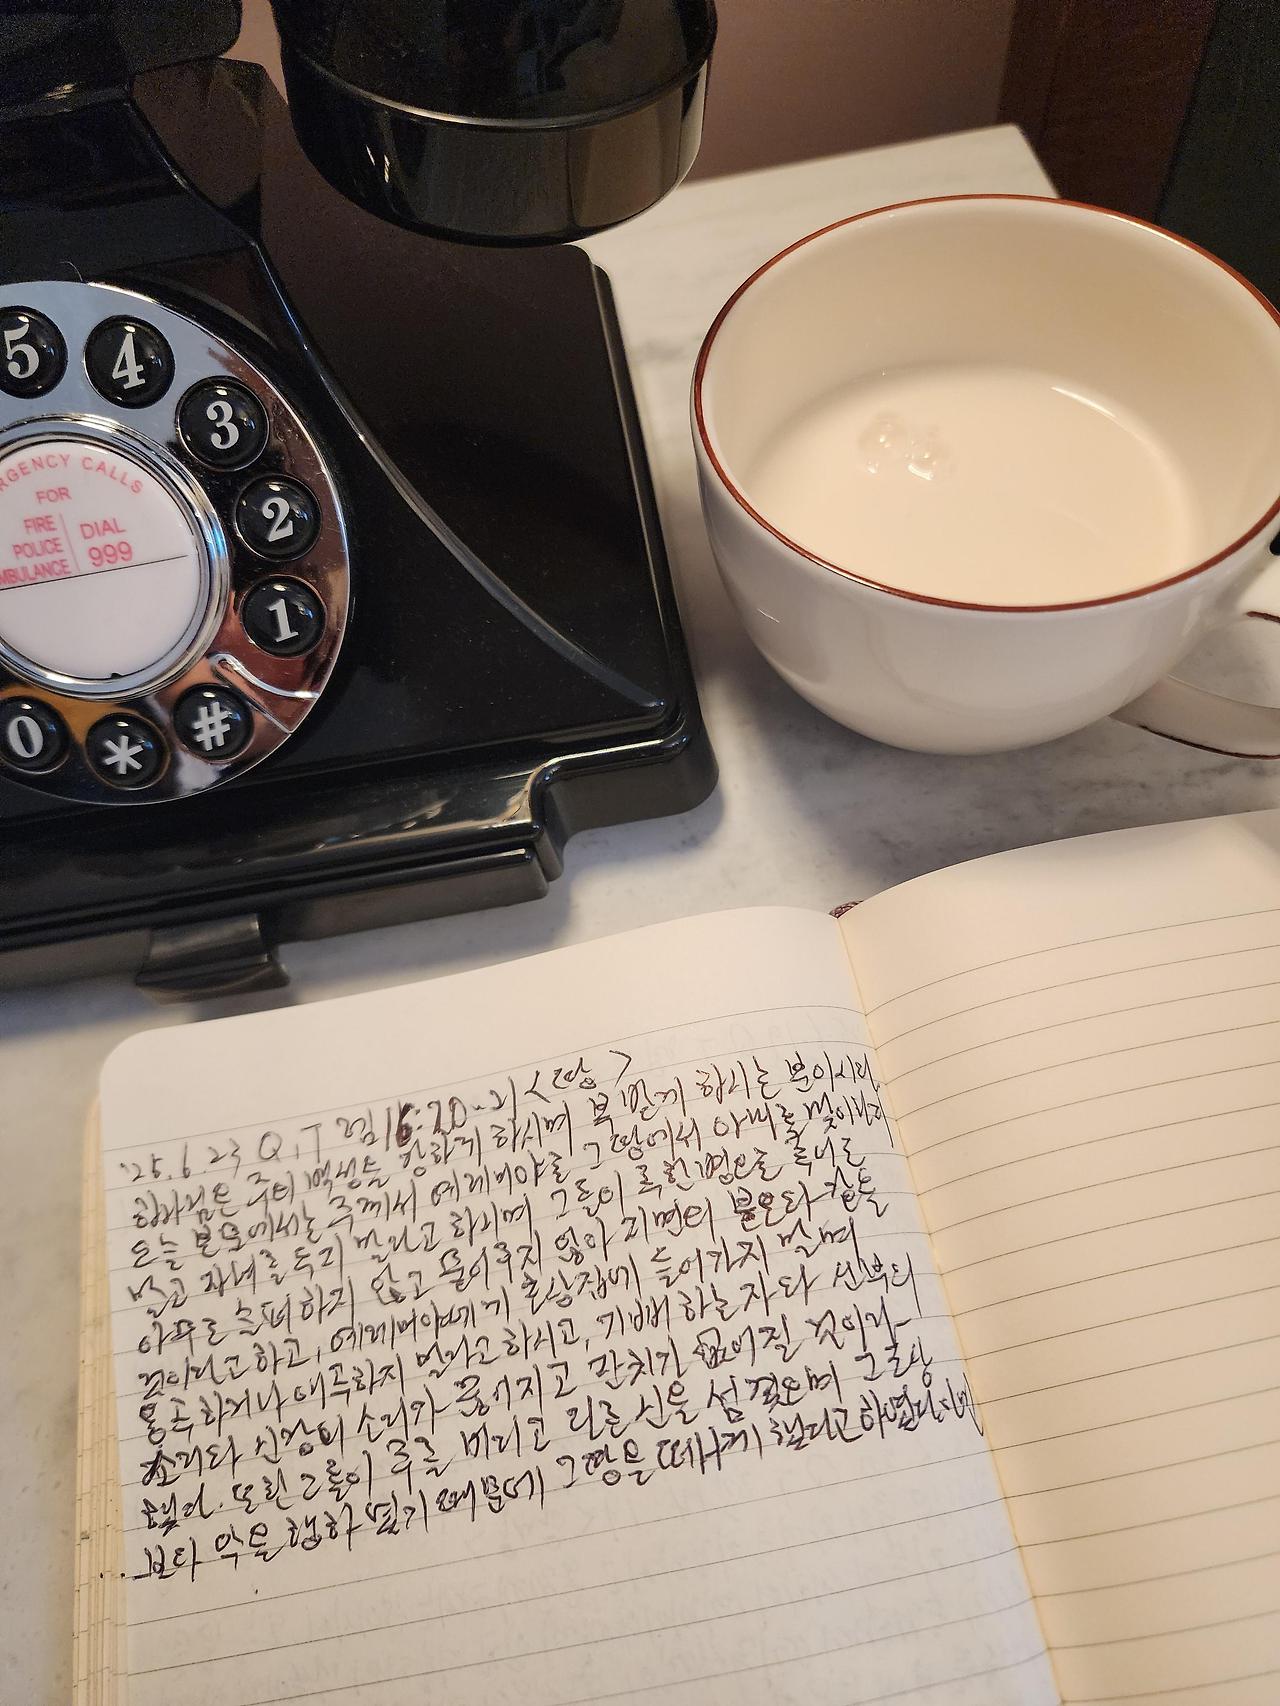 5
4
3
2
1
0
*
#
RGENCY CALLS
FOR
FIRE
POLICE
MBULANCE
DIAL
999
'25.6.23 Q.T 렘16: <땅>
하나님은 주의 백성을 강하게 하시며 하시는 분이시다.
오늘 본문에서는 주께서 예레미야를 그 땅에서 아내를 맞이하
낳고 자녀를 두지 말라고 하시며 그들이 독한 병으로 죽어도
아무도 슬퍼하지 않고 묻어주지 않아 지면의 분토와 같을
것이라고 하고, 예레미야에게 초상집에 들어가지 말며
통곡하거나 애곡하지 말라고 하시고, 기뻐하는 자와 신부의
소리와 신랑의 소리가 끊어지고 잔치가 없어질 것이라
했다. 또한 그들이 주를 버리고 다른 신을 섬겼으며 그 조상
보다 악을 행하였기 때문에 그 땅을 떠나게 했다고 하였다.